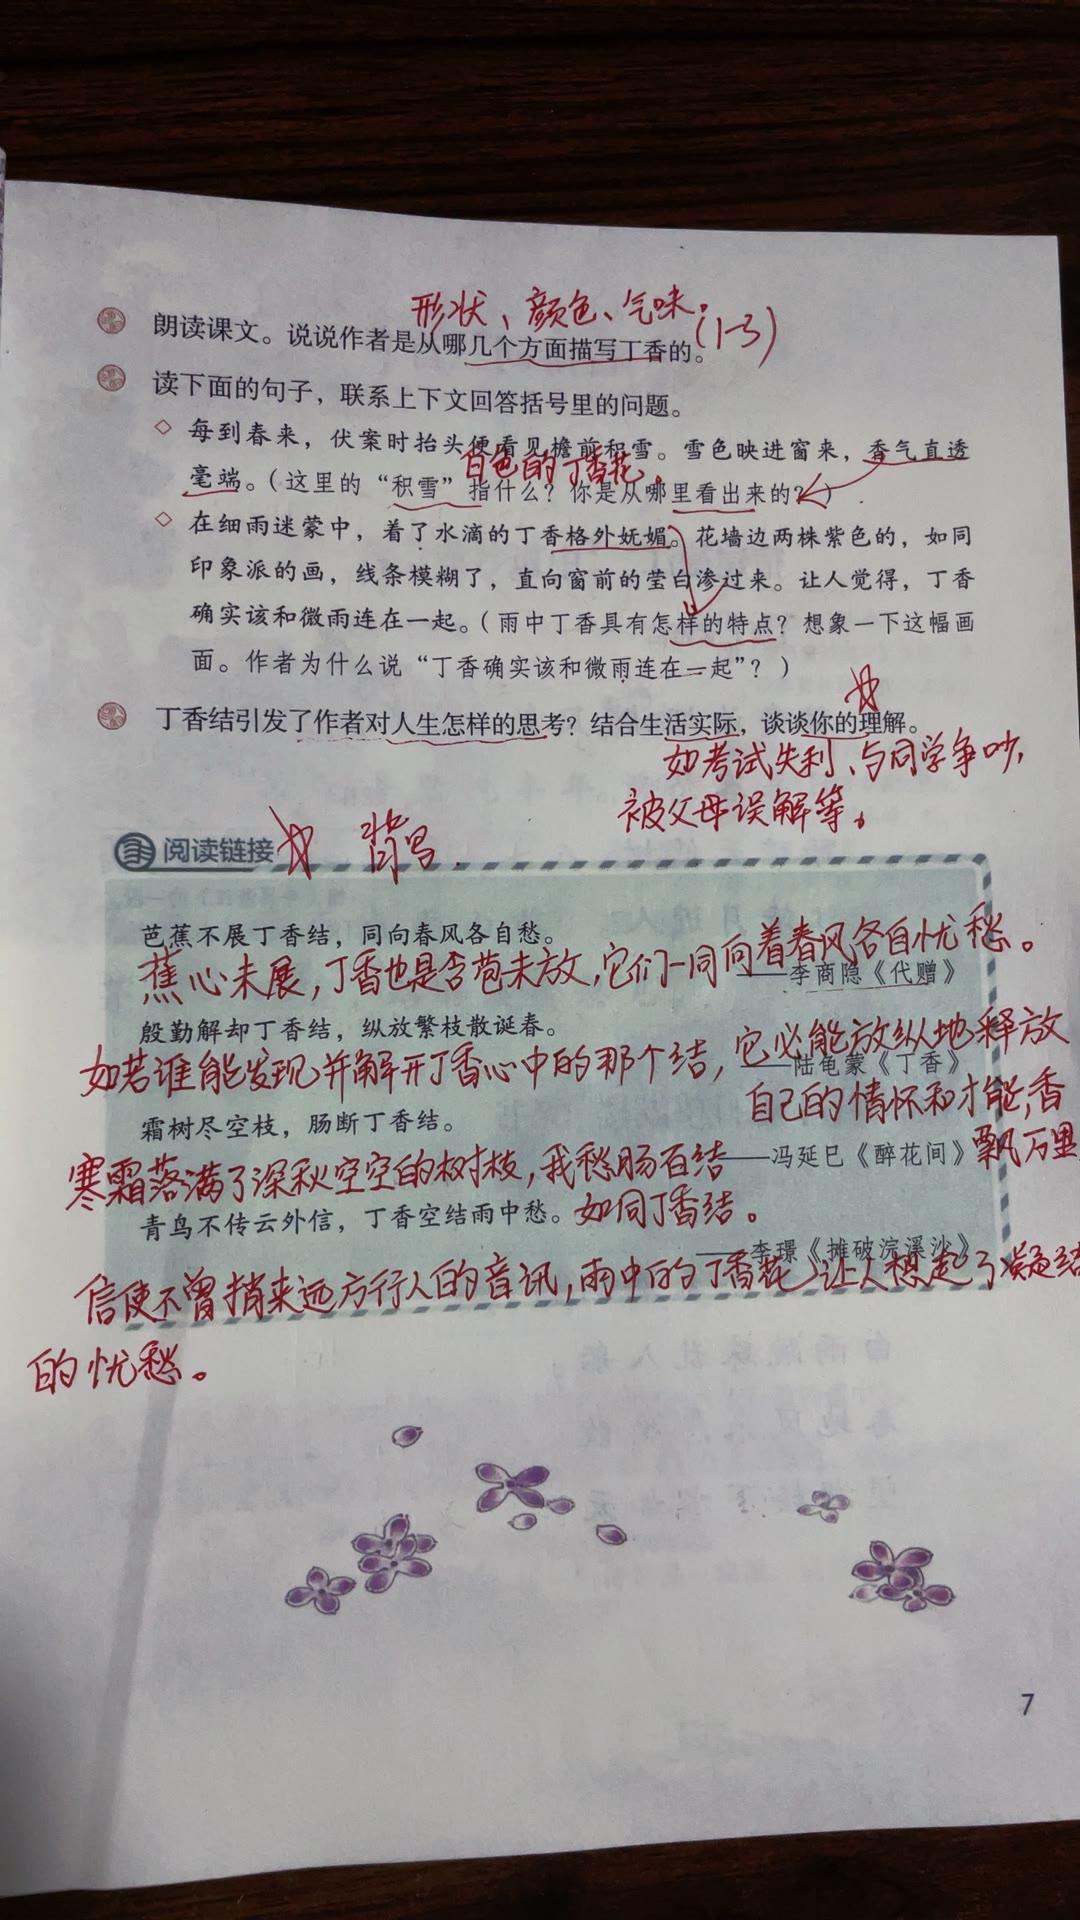 形状、颜色、气味。(1-3)
朗读课文。说说作者是从哪几个方面描写丁香的。
读下面的句子，联系上下文回答括号里的问题。
◇ 每到春来，伏案时抬头便看见檐前积雪。雪色映进窗来，香气直透
白色的丁香花。
毫端。（这里的“积雪”指什么？你是从哪里看出来的？）
◇ 在细雨迷蒙中，着了水滴的丁香格外妩媚。花墙边两株紫色的，如同
印象派的画，线条模糊了，直向窗前的莹白渗过来。让人觉得，丁香
确实该和微雨连在一起。（雨中丁香具有怎样的特点？想象一下这幅画
面。作者为什么说“丁香确实该和微雨连在一起”？）
丁香结引发了作者对人生怎样的思考？结合生活实际，谈谈你的理解。
如考试失利、与同学争吵，
被父母误解等。
阅读链接 背写
芭蕉不展丁香结，同向春风各自愁。
蕉心未展，丁香也是含苞未放，它们一同向着春风各自忧愁。
——李商隐《代赠》
殷勤解却丁香结，纵放繁枝散诞春。
如若谁能发现并解开丁香心中的那个结，它必能放纵地释放
——陆龟蒙《丁香》
自己的情怀和才能，香
霜树尽空枝，肠断丁香结。
——冯延巳《醉花间》飘万里
寒霜落满了深秋空空的树枝，我愁肠百结
青鸟不传云外信，丁香空结雨中愁。如同丁香结。
——李璟《摊破浣溪沙》
信使不曾捎来远方行人的音讯，雨中的丁香花让人想起了凝结
的忧愁。
7